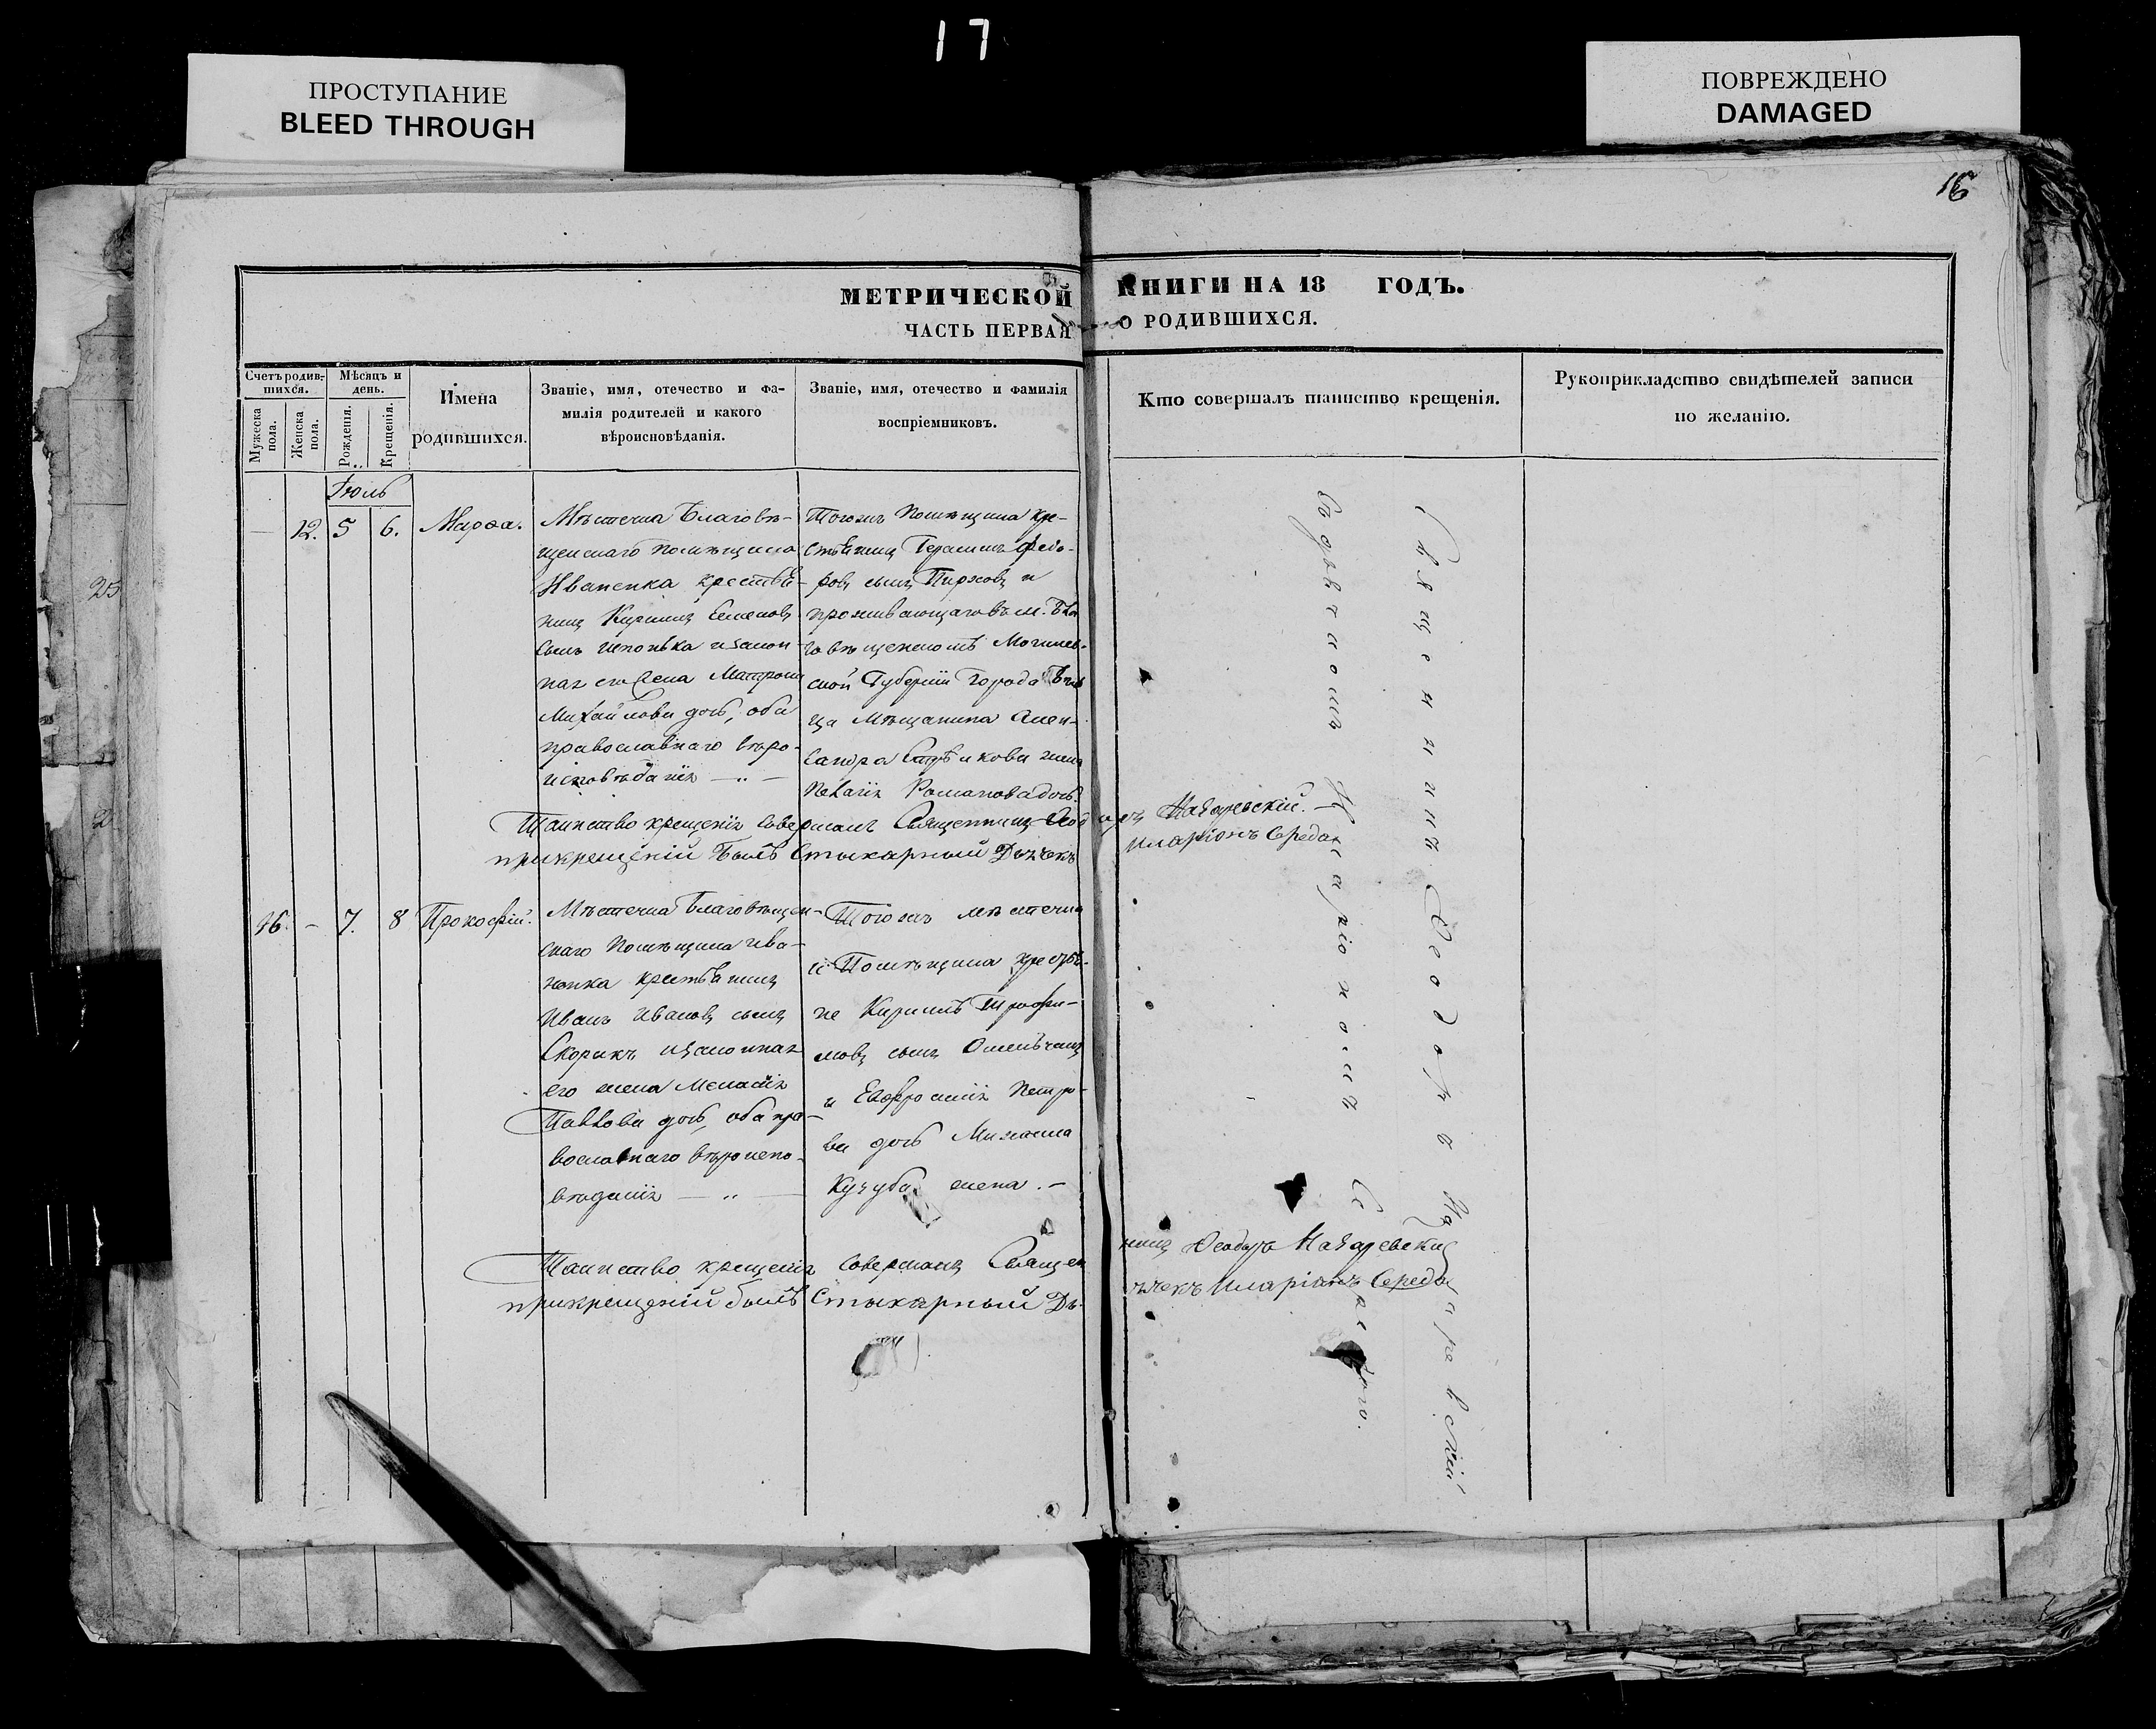 17
ПРОСТУПАНИЕ
BLEED THROUGH
ПОВРЕЖДЕНО
DAMAGED
16
МЕТРИЧЕСКОЙ КНИГИ НА 18 ГОДЪ.
ЧАСТЬ ПЕРВАЯ О РОДИВШИХСЯ.
Счетъ родив-
шихся.
Мужеска
пола.
Женска
пола.
Мѣсяцъ и
день.
Рожденія.
Крещенія.
Имена
родившихся.
Званіе, имя, отечество и фа-
милія родителей и какого
вѣроисповѣданія.
Званіе, имя, отечество и фамилія
воспріемниковъ.
Кто совершалъ таинство крещенія.
Рукоприкладство свидѣтелей записи
по желанію.
Іюль
12. 5 6. Марѳа.
Мѣстечка Благовѣ-
щенскаго помѣщика
Иваненка крестья-
нинъ Кириллъ Семеновъ
сынъ и закон-
ная его жена Матрона
Михайлова дочь, оба
православнаго вѣро-
исповѣданія — „ —
Тогожъ Помѣщика кре-
стьянинъ Герасимъ Федо-
ровъ сынъ и
проживающаго въ м. Бла-
говѣщенскомъ Могилев-
ской Губерніи города
Мѣщанина Алек-
сандра жена
Пелагія Романова дочь.
Таинство крещенія совершалъ Священникъ Ѳеодоръ Назаревскій.
при крещеніи былъ Стихарный Дьячекъ Иларіонъ Середа
16. - 7. 8 Прокофій.
Мѣстечка Благовѣщен-
скаго Помѣщика Ива-
ненка крестьянинъ
Иванъ Ивановъ сынъ
Скорикъ и законная
его жена Меланія
Павлова дочь, оба пра-
вославнаго вѣроиспо-
вѣданія — „ —
Тогожъ мѣстечка
и Помѣщика крестья-
не Кириллъ Трофи-
мовъ сынъ
и Евфросинія Петро-
ва дочь
жена. —
Таинство крещенія совершалъ Священникъ Ѳеодоръ Назаревскій
при крещеніи былъ Стихарный Дьячекъ Иларіонъ Середа
Священникъ Ѳеодоръ Назаревскій
Иларіономъ Середою.